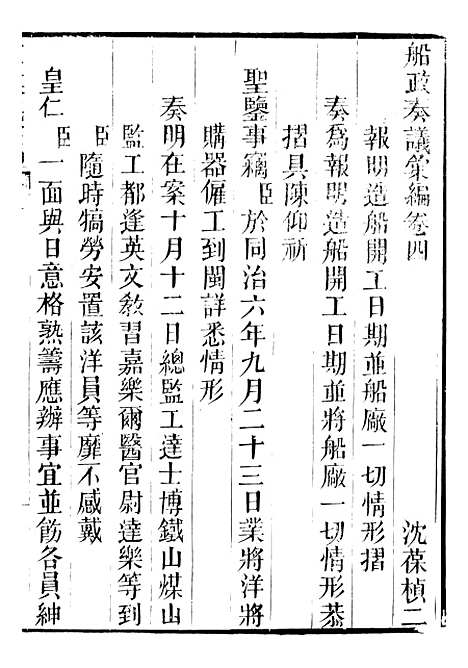 船政奏議彙編卷四 沈葆楨二
報明造船開工日期並船廠一切情形摺
奏爲報明造船開工日期並將船廠一切情形恭
摺具陳仰祈
聖鑒事竊臣於同治六年九月二十三日業將洋將
購器僱工到閩詳悉情形
奏明在案十月十二日總監工達士博鐵山煤山
監工都逢英文敎習嘉樂爾醫官尉達樂等到
臣隨時犒勞安置該洋員等靡不感戴
皇仁臣一面與日意格熟籌應辦事宜並飭各員紳